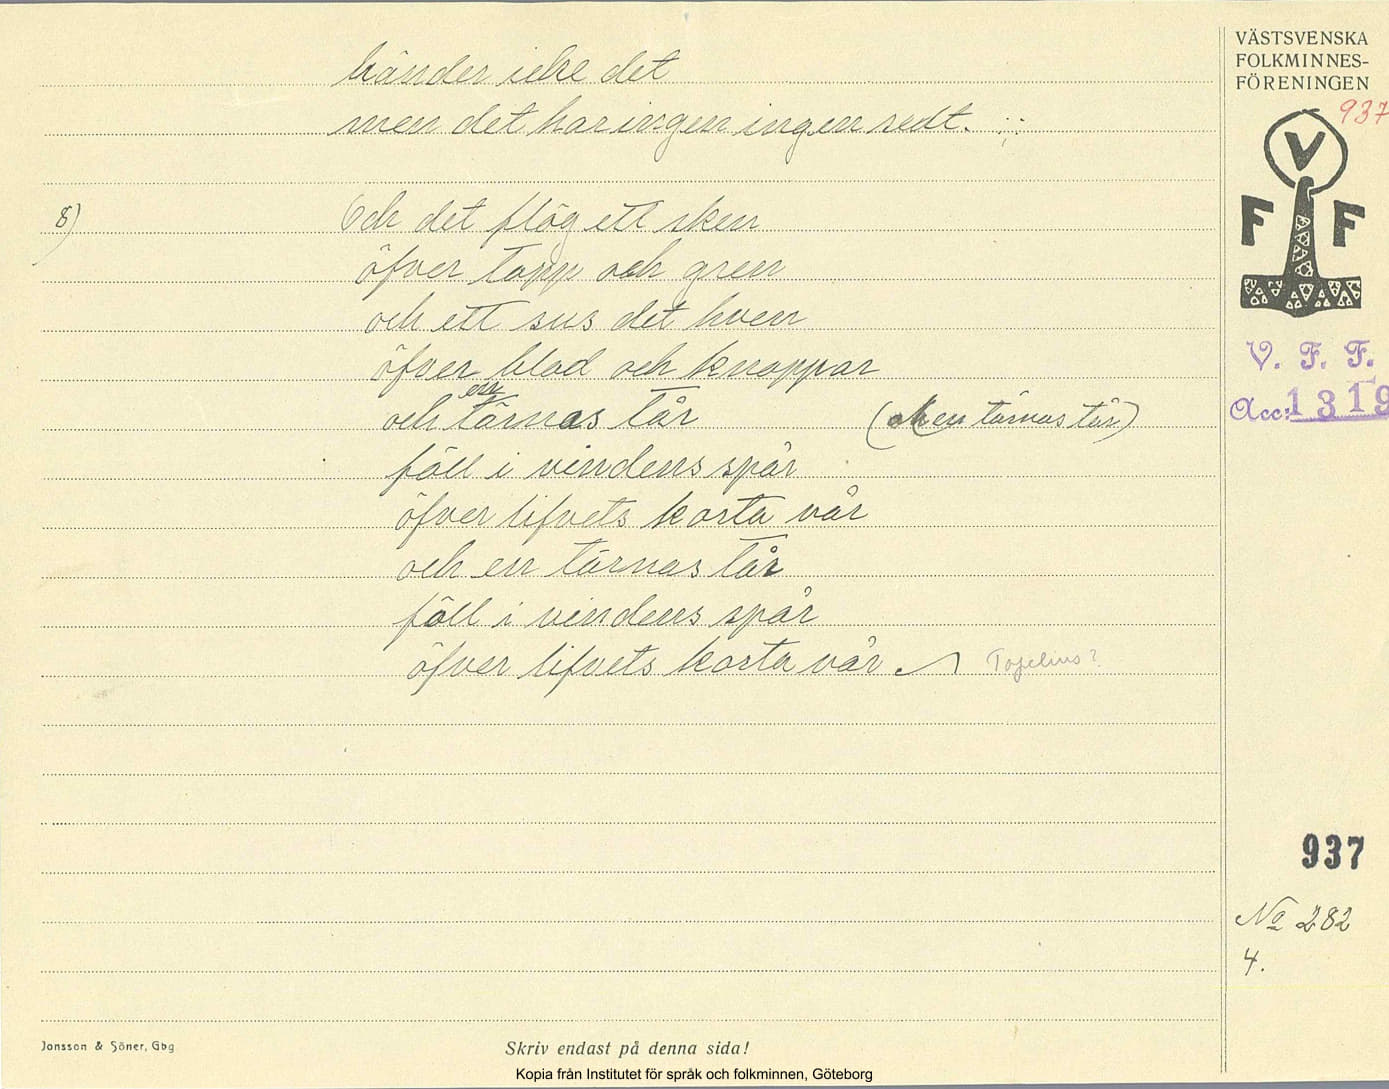 händer icke det
men det har ingen ingen sedt. :;:
8)
Och det flög ett sken
öfver topp och gren
och ett sus det hven
öfver blad och knoppar
en
och tärnas tår (och en tärnas tår)
föll i vindens spår
öfver lifvets korta vår
och en tärnas tår
föll i vindens spår
öfver lifvets korta vår.
Topelius?
VÄSTSVENSKA
FOLKMINNES-
FÖRENINGEN
937
V
F F
V. F. F.
Acc: 1319
937
No 282
4.
Jonsson & Söner, Gbg
Skriv endast på denna sida!
Kopia från Institutet för språk och folkminnen, Göteborg